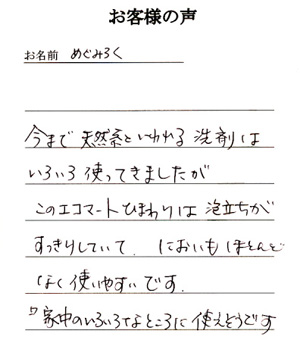 お客様の声
お名前 めぐみろく
今まで天然系といわれる洗剤は
いろいろ使ってきましたが
このエコマートひまわりは泡立ちが
すっきりしていて、においもほとんど
なく使いやすいです。
家中のいろいろなところに使えそうです